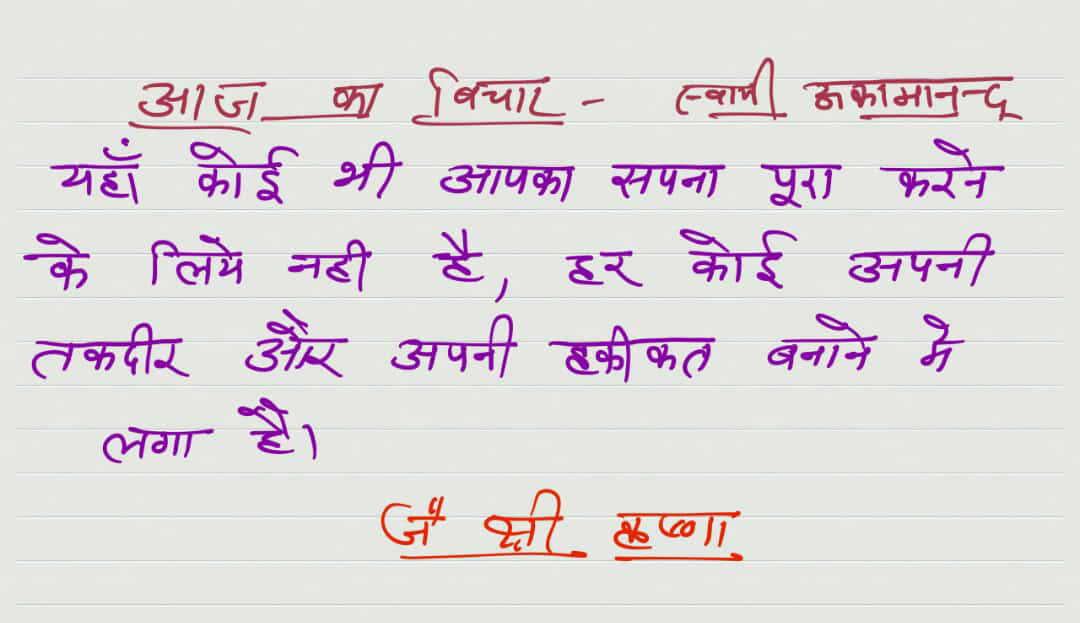 आज का विचार - स्वामी अकामानन्द
यहाँ कोई भी आपका सपना पूरा करने
के लिये नही है, हर कोई अपनी
तकदीर और अपनी हकीकत बनाने मे
लगा है।
जै श्री कृष्णा